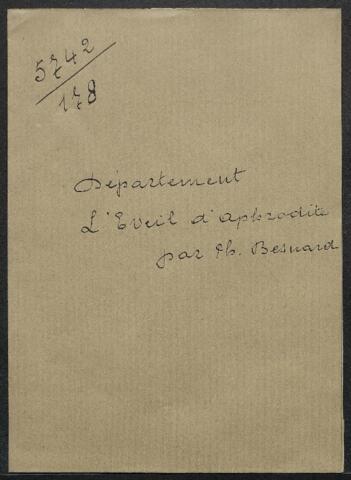 5742
178
Département
L'Eveil d'Aphrodite
par Ph. Besnard